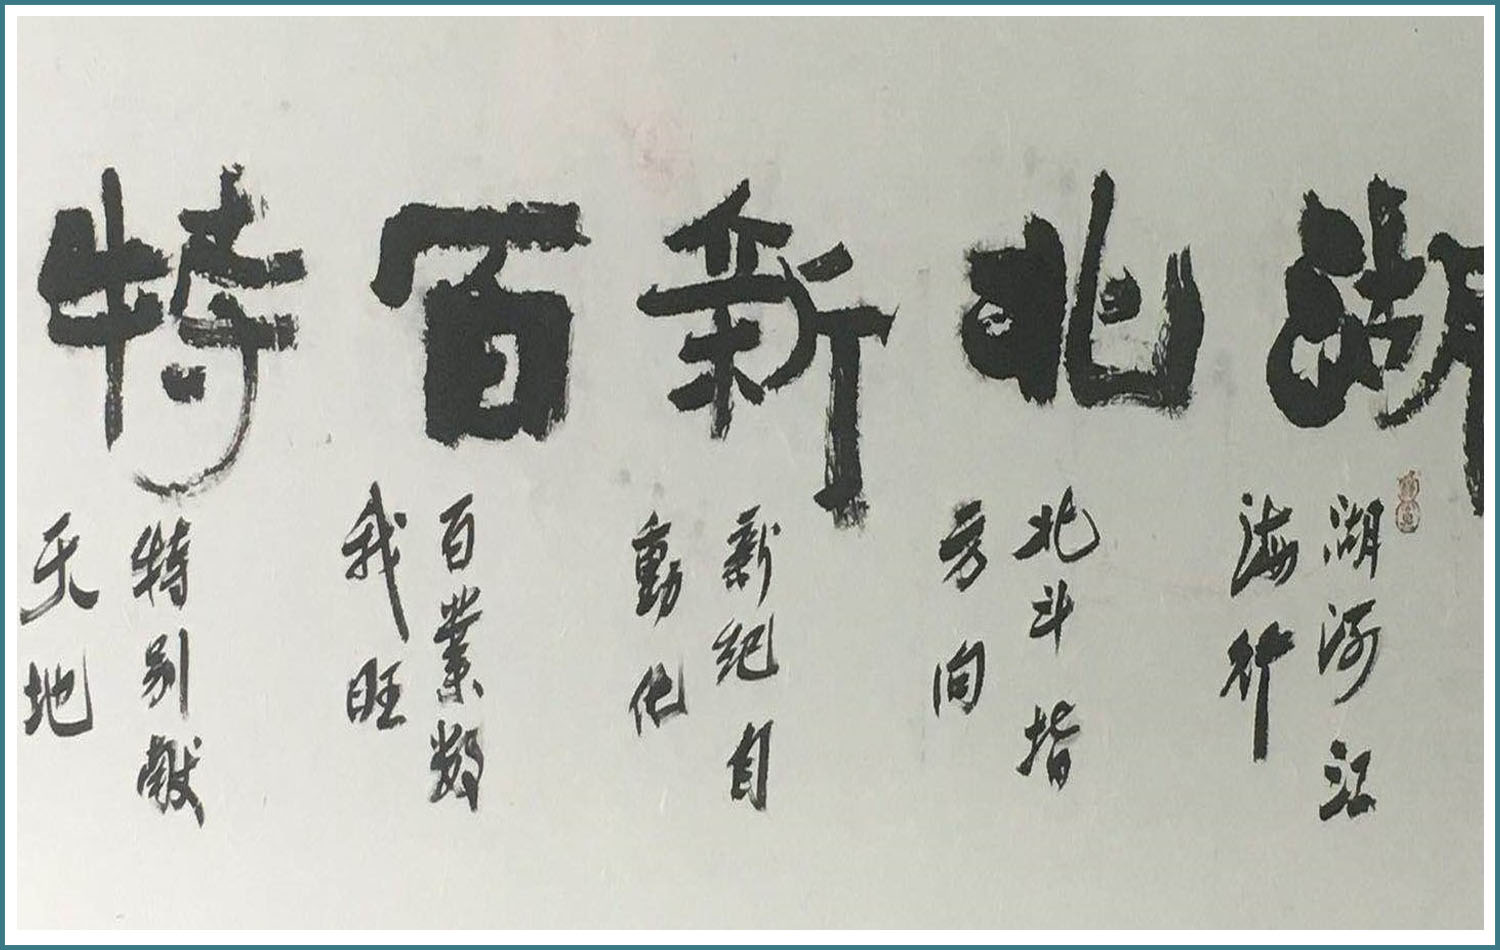 湖北新百特
湖河江
海行
北斗指
方向
新纪自
動化
百業数
我旺
特别献
天地